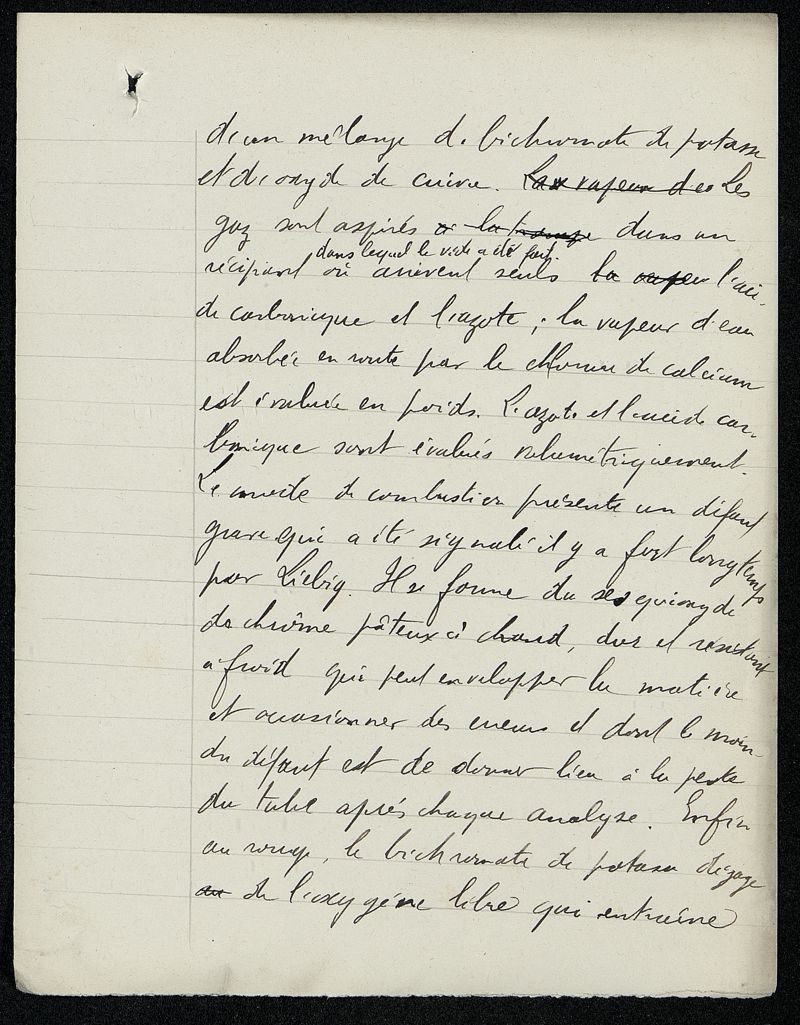 d'un mélange de bichromate de potasse
et d'oxyde de cuivre. La vapeur d'eo Les
gaz sont aspirés à la trompe dans un
dans lequel le vide a été fait
récipient où arrivent seuls la vapeu l'aci-
de carbonique et l'azote ; la vapeur d'eau
absorbée en route par le chlorure de calcium
est évaluée en poids. L'azote et l'acide car-
bonique sont évalués volumétriquement.
Ce mode de combustion présente un défaut
grave qui a été signalé il y a fort longtemps
par Liebig. Il se forme du sesquioxyde
de chrôme pâteux à chaud, dur et résistant
a froid qui peut envelopper la matière
et occasionner des erreurs et dont le moin-
dre défaut est de donner lieu à la perte
du tube après chaque analyse. Enfin
au rouge, le bichromate de potasse dégage
de l'oxygène libre qui entraîne